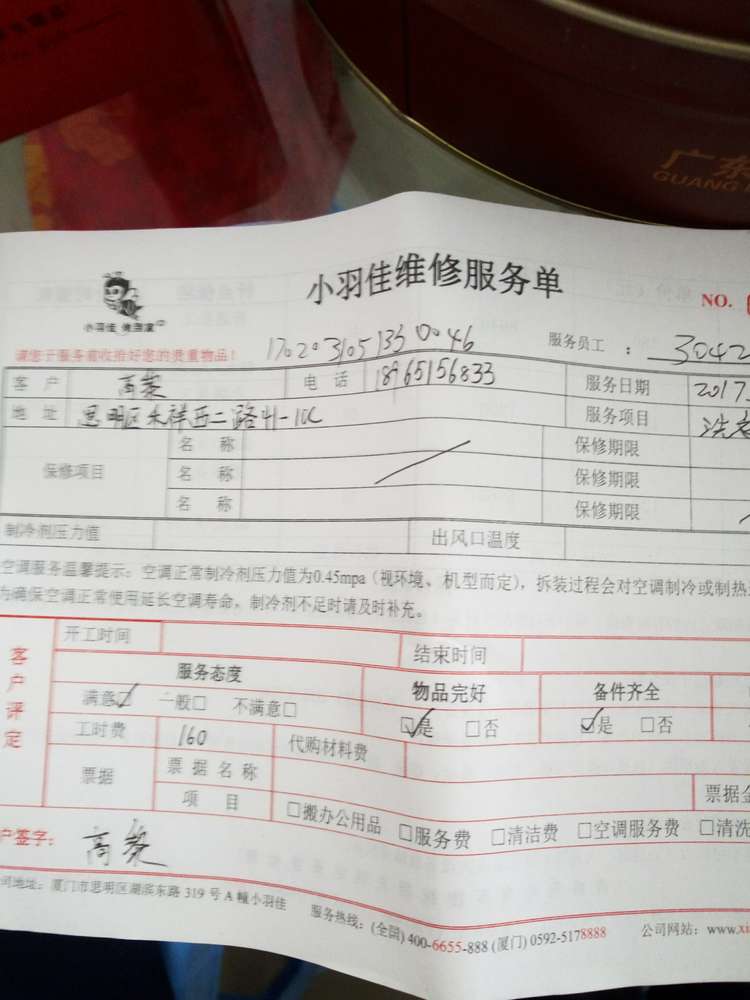 广东
GUANG
小羽佳维修服务单
小羽佳
NO.
请您于服务前收拾好您的贵重物品！
170203105133 0046
服务员工 ： 3042
客户 高黎 电话 18965156833 服务日期 2017.
地址 思明区禾祥西二路41-10C 服务项目 洗
保修项目 名称 保修期限
名称 保修期限
名称 保修期限
制冷剂压力值 出风口温度
空调服务温馨提示：空调正常制冷剂压力值为0.45mpa（视环境、机型而定），拆装过程会对空调制冷或制热
为确保空调正常使用延长空调寿命，制冷剂不足时请及时补充。
客户评定 开工时间 结束时间
服务态度 物品完好 备件齐全
满意☑ 一般□ 不满意□ ☑是 □否 ☑是 □否
工时费 160 代购材料费
票据 票据名称 票据金
项目 □搬办公用品 □服务费 □清洁费 □空调服务费 □清洗
户签字： 高黎
司地址：厦门市思明区湖滨东路 319 号 A 幢小羽佳 服务热线：(全国) 400-6655-888 (厦门) 0592-5178888 公司网站：www.xi